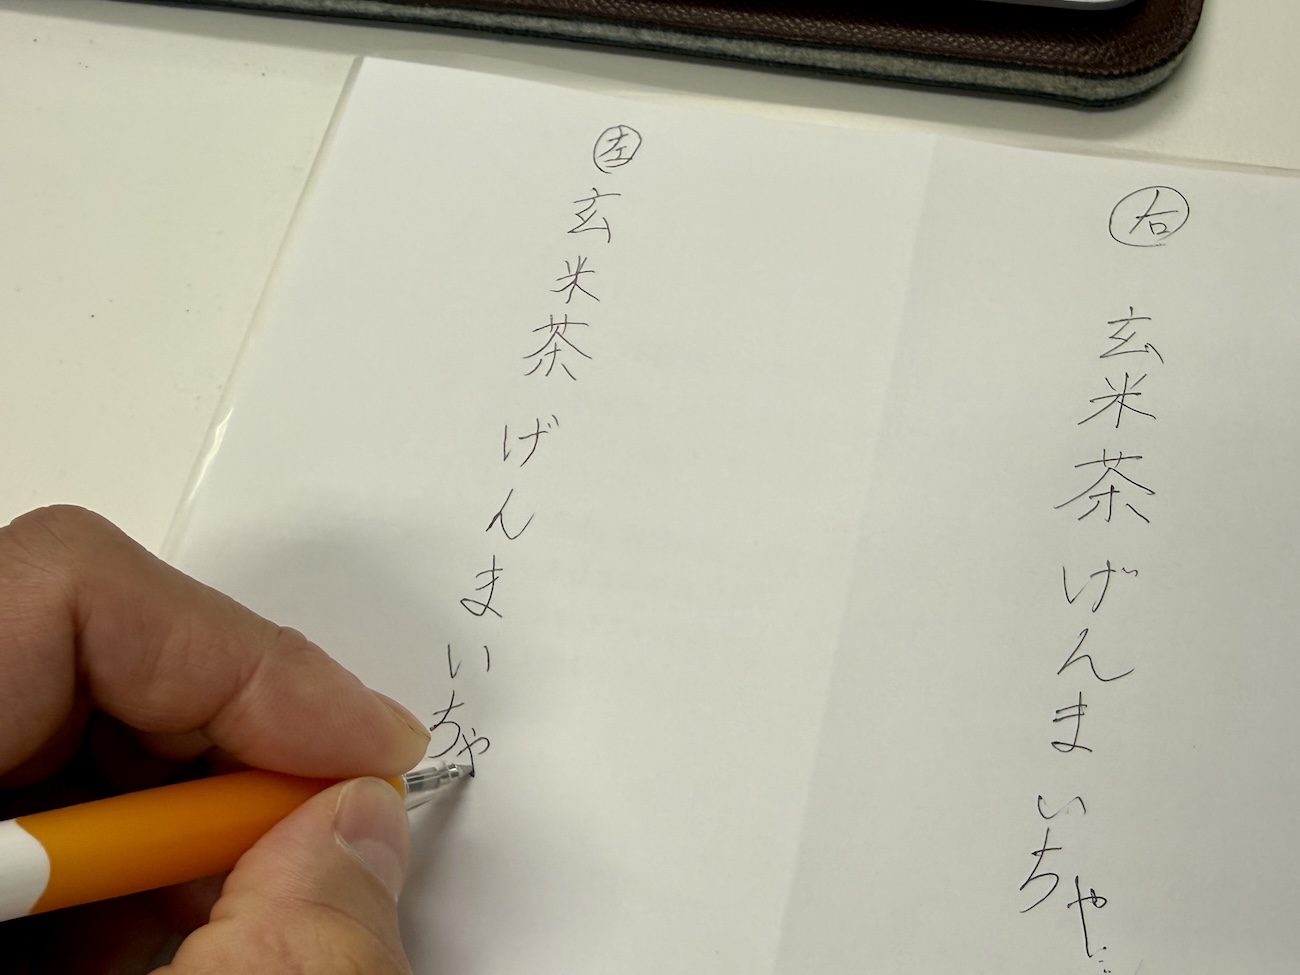 右
玄米茶げんまいちゃ…
左
玄米茶げんまいちゃ